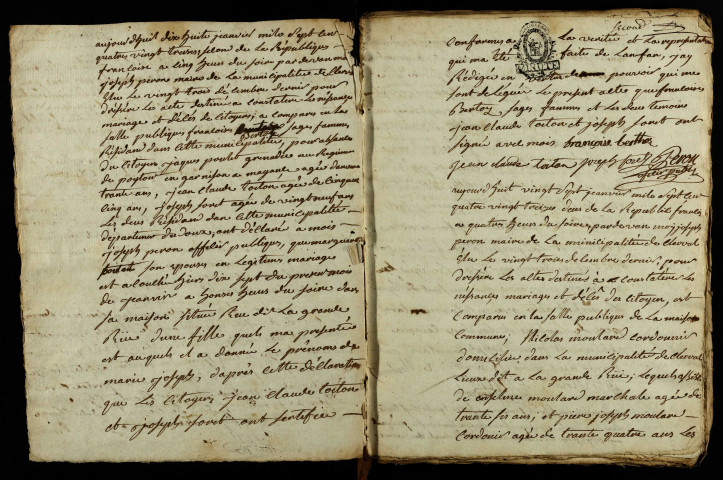 aujourd'huit dix huite janvier mile sept cen
quatre vingt treise, selon de La République
francoise a cinq heur du soire par devan moi
joseph peron maire de La municipalité de Clerval
Elue Le vingt trois de sembre dernier pour
dresser Les acte destiné a constater Les nésances
mariage et délés de citoyens; a comparu en La
salle publique francoise Berthey sages fammes,
Residant dans cette municipalité, pour absente
du citoyen jaques grenadie au Regiment
de en garnison a agée danviron
trante ans, jean Claude toiton agée de cinquante
cinq ans, joseph foret agée de vingt neuf ans
Les deux Résidan dan cette municipalité
département du doux; ont déclaré a mois
joseph peron officié publique, que margueritte
son épouses en Legitime mariage
est a coutée hiers dix sept du present mois
de jeanvier a honse heur du soire dans
sa maison située Rue dit La grande
Rüe, d'une fille, quels ma presenté
est auquels il a donné Le prénome de
marie joseph, d'aprés cette déclaration
que Les citoyen jean claude toiton
et joseph foret ont sertifée
second
conforme a La verité et La representation
qui ma été faite de Lanfan, j'ay
Redigée en vertu de pouvoir qui me
sont delegué Le present acte que francoise
Bertoy sages fammes et Les deux temoins
jean Claude toiton et joseph foret ont
signé avec mois francoise berthey
jean claude toiton joseph foret Peron
aujourd huit vingt sept janvier mile sept cen
quatre vingt treize deux de la Republiq francois
a quatre heur du soire, par devan moi joseph
peron maire de La municipalité de Clerval
Elue Le vingt trois de cembre dernier; pour
dresser Les actes destinés a constatere Les
nésances mariages et délés du citoyen, est
comparu en La salle publique de La maison
commune, Nicolas moulare cordonnie
domicilié dans La municipalité de Clerval
Lieux dit a la grande Rüe; Lequels assisté
de anselme moulare marchale agée de
trante sis ans, et piere joseph moulare
Cordonié agée de trante quatre ans Les